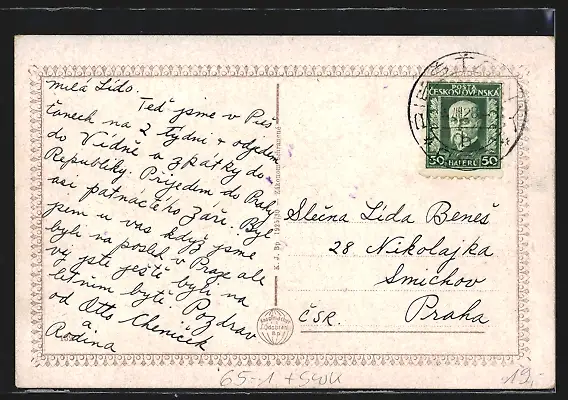 milá Lído.
Teď jsme v Pieš
ťanech na 2 týdni + odjedem
do Vídně a zpátky do
Republiky. Přijedem do Prahy
asi patnáctého Záře. Byl
jsem u vas když jsme
byli na posled v Praze ale
vy jste ještě byli na
letním bytě. Pozdrav
od Otto Cheniček
a.
Rodina
K. J. Bp. 1925/30 Zákonem chráněno
POSTA
ČESKOSLOVENSKÁ
50 HALÉŘŮ 50
Slečna Lída Beneš
28 Nikolajka
Smichov
Praha
ČSR.
65-1 +
19,-